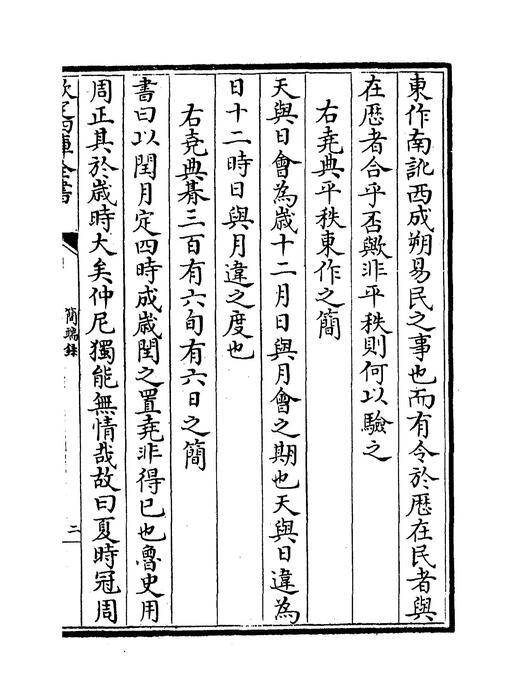 東作南訛西成朔易民之事也而有令於歴在民者與
在歴者合乎否歟非平秩則何以驗之
右堯典平秩東作之簡
天與日會為歳十二月日與月會之期也天與日違為
日十二時日與月違之度也
右堯典朞三百有六旬有六日之簡
書曰以閏月定四時成歳閏之置堯非得已也魯史用
周正其於歳時大矣仲尼獨能無情哉故曰夏時冠周
欽定四庫全書
簡端録
二